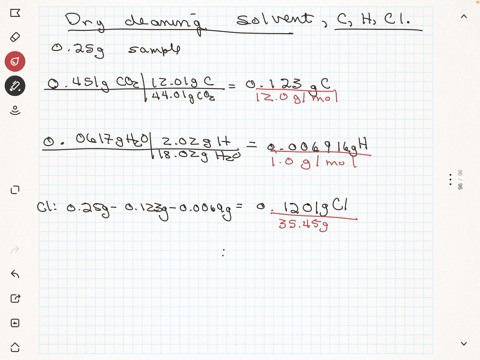 Dry cleaning solvent, C, H, Cl.
0.25g sample
0.451g CO₂ | 12.01g C = 0.123 gC
44.01g CO₂ 12.0 g/mol
0.0617gH₂O | 2.02g H = 0.006916gH
18.02g H₂O 1.0 g/mol
Cl: 0.25g - 0.123g - 0.0069g = 0.1201g Cl
35.45g
: